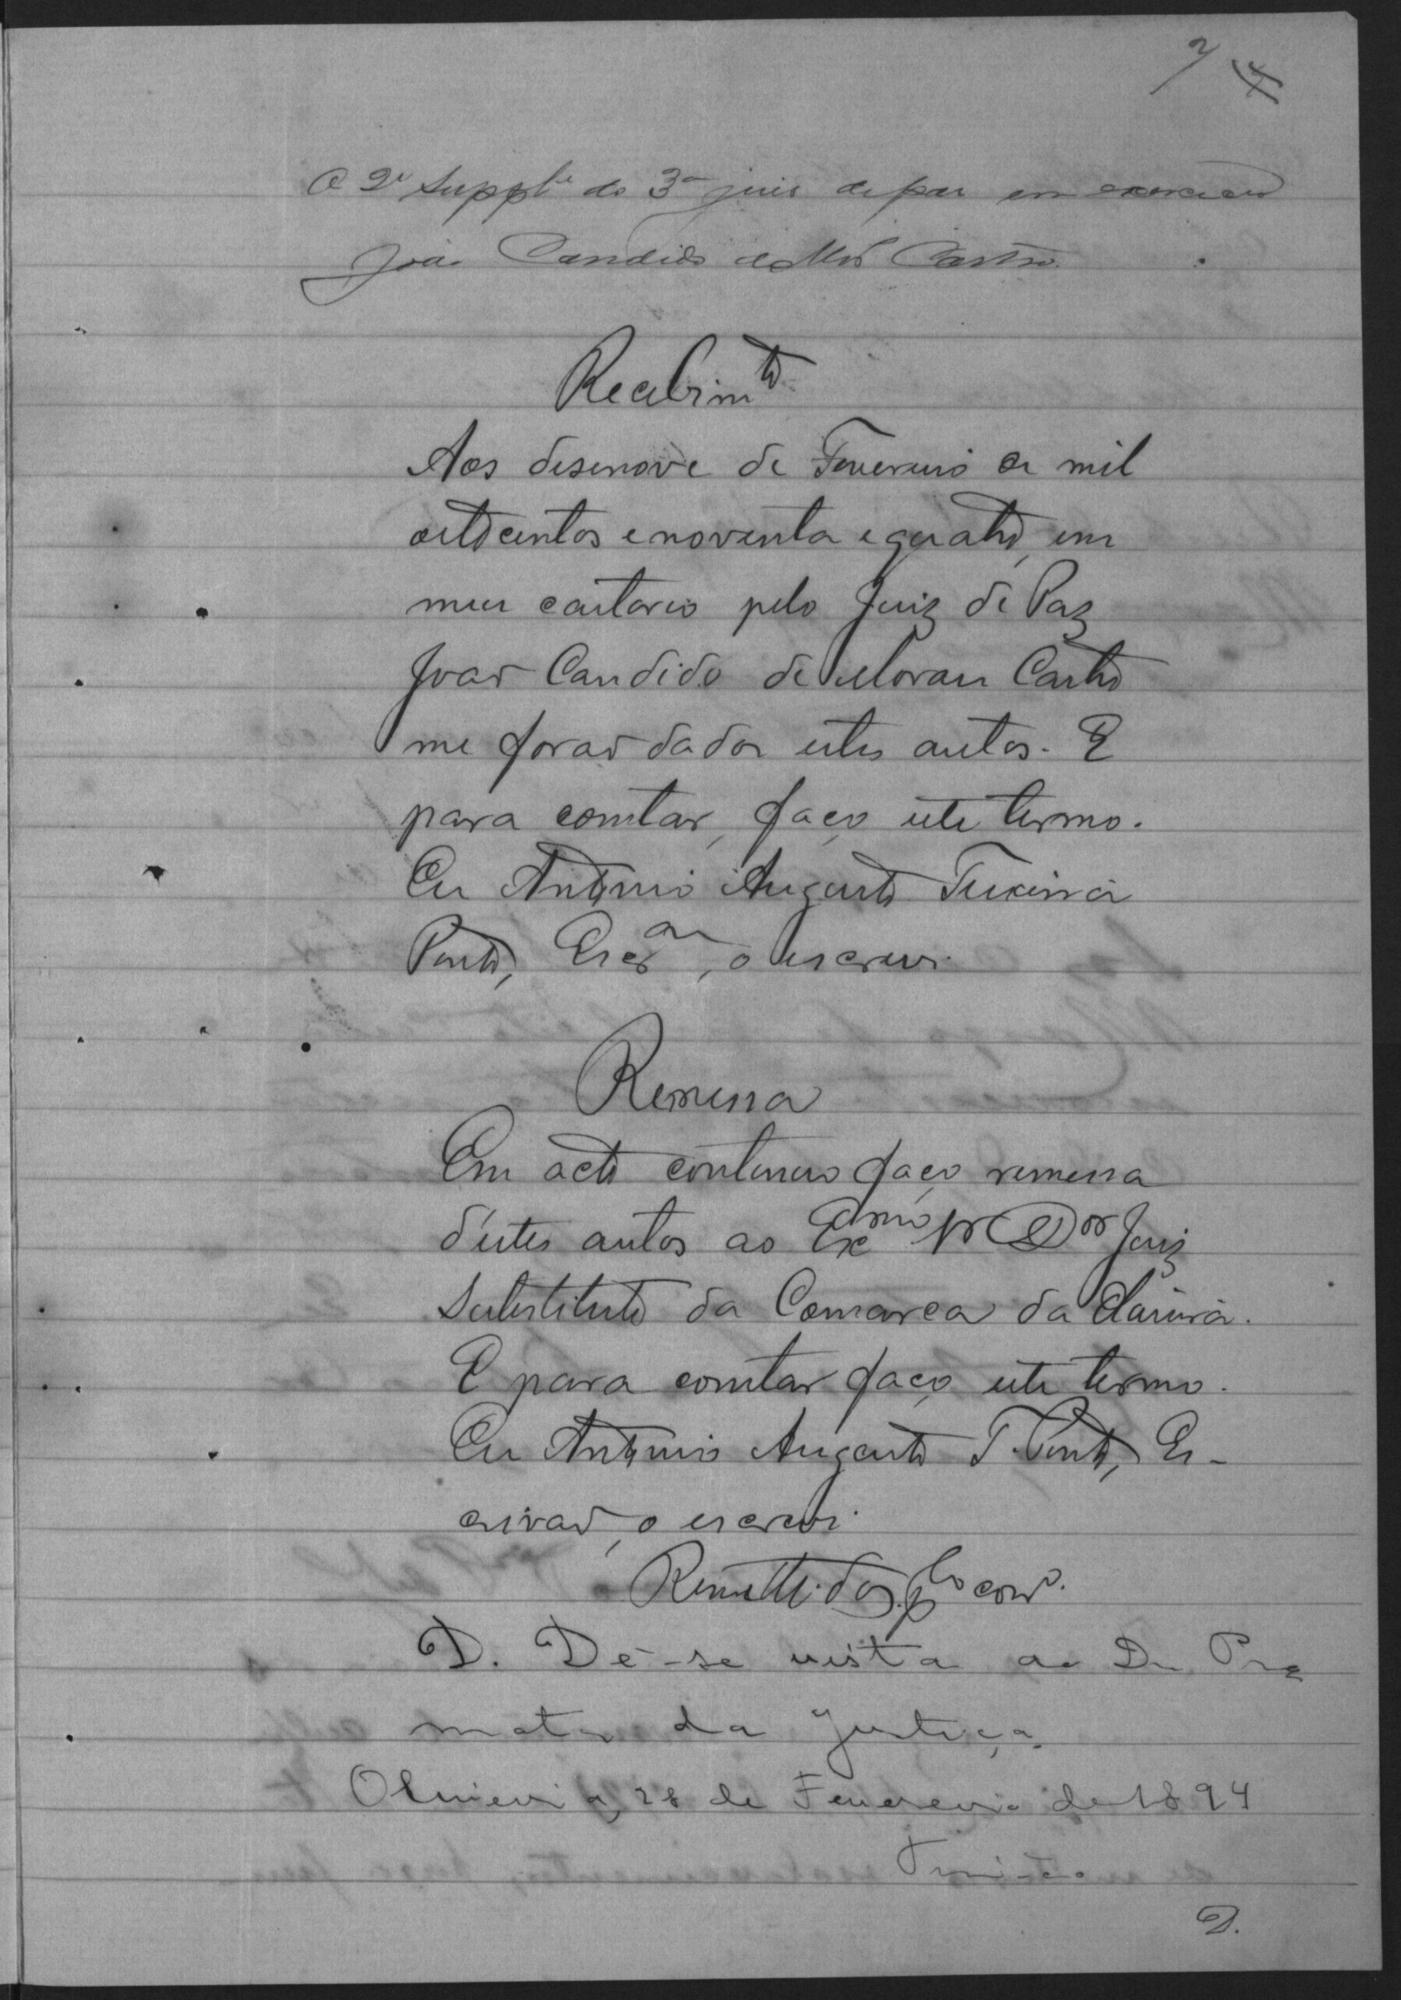 O 2º Suppl.e do 3º juis de paz em exercicio
João Candido de Mor Castro.
Recebimto
Aos desenove de Fevereiro de mil
oitocentos e noventa e quatro, em
meu cartorio pelo Juiz de Paz
João Candido de Moraes Castro
me forão dados estes autos. E
para constar, faço este termo.
Eu Antonio Augusto Teixeira
Pinto, Escram, o escrevi.
Remessa
Em acto continuo faço remessa
d'estes autos ao Exmo Sr Dor Juiz
Substituto da Comarca da
E para constar faço este termo.
Eu Antonio Augusto T. Pinto, Es-
crivão, o escrevi.
Remettidos plo corro.
D. Dê-se vista ao Dr Pro
motor da Justiça.
28 de Fevereiro de 1894
D.